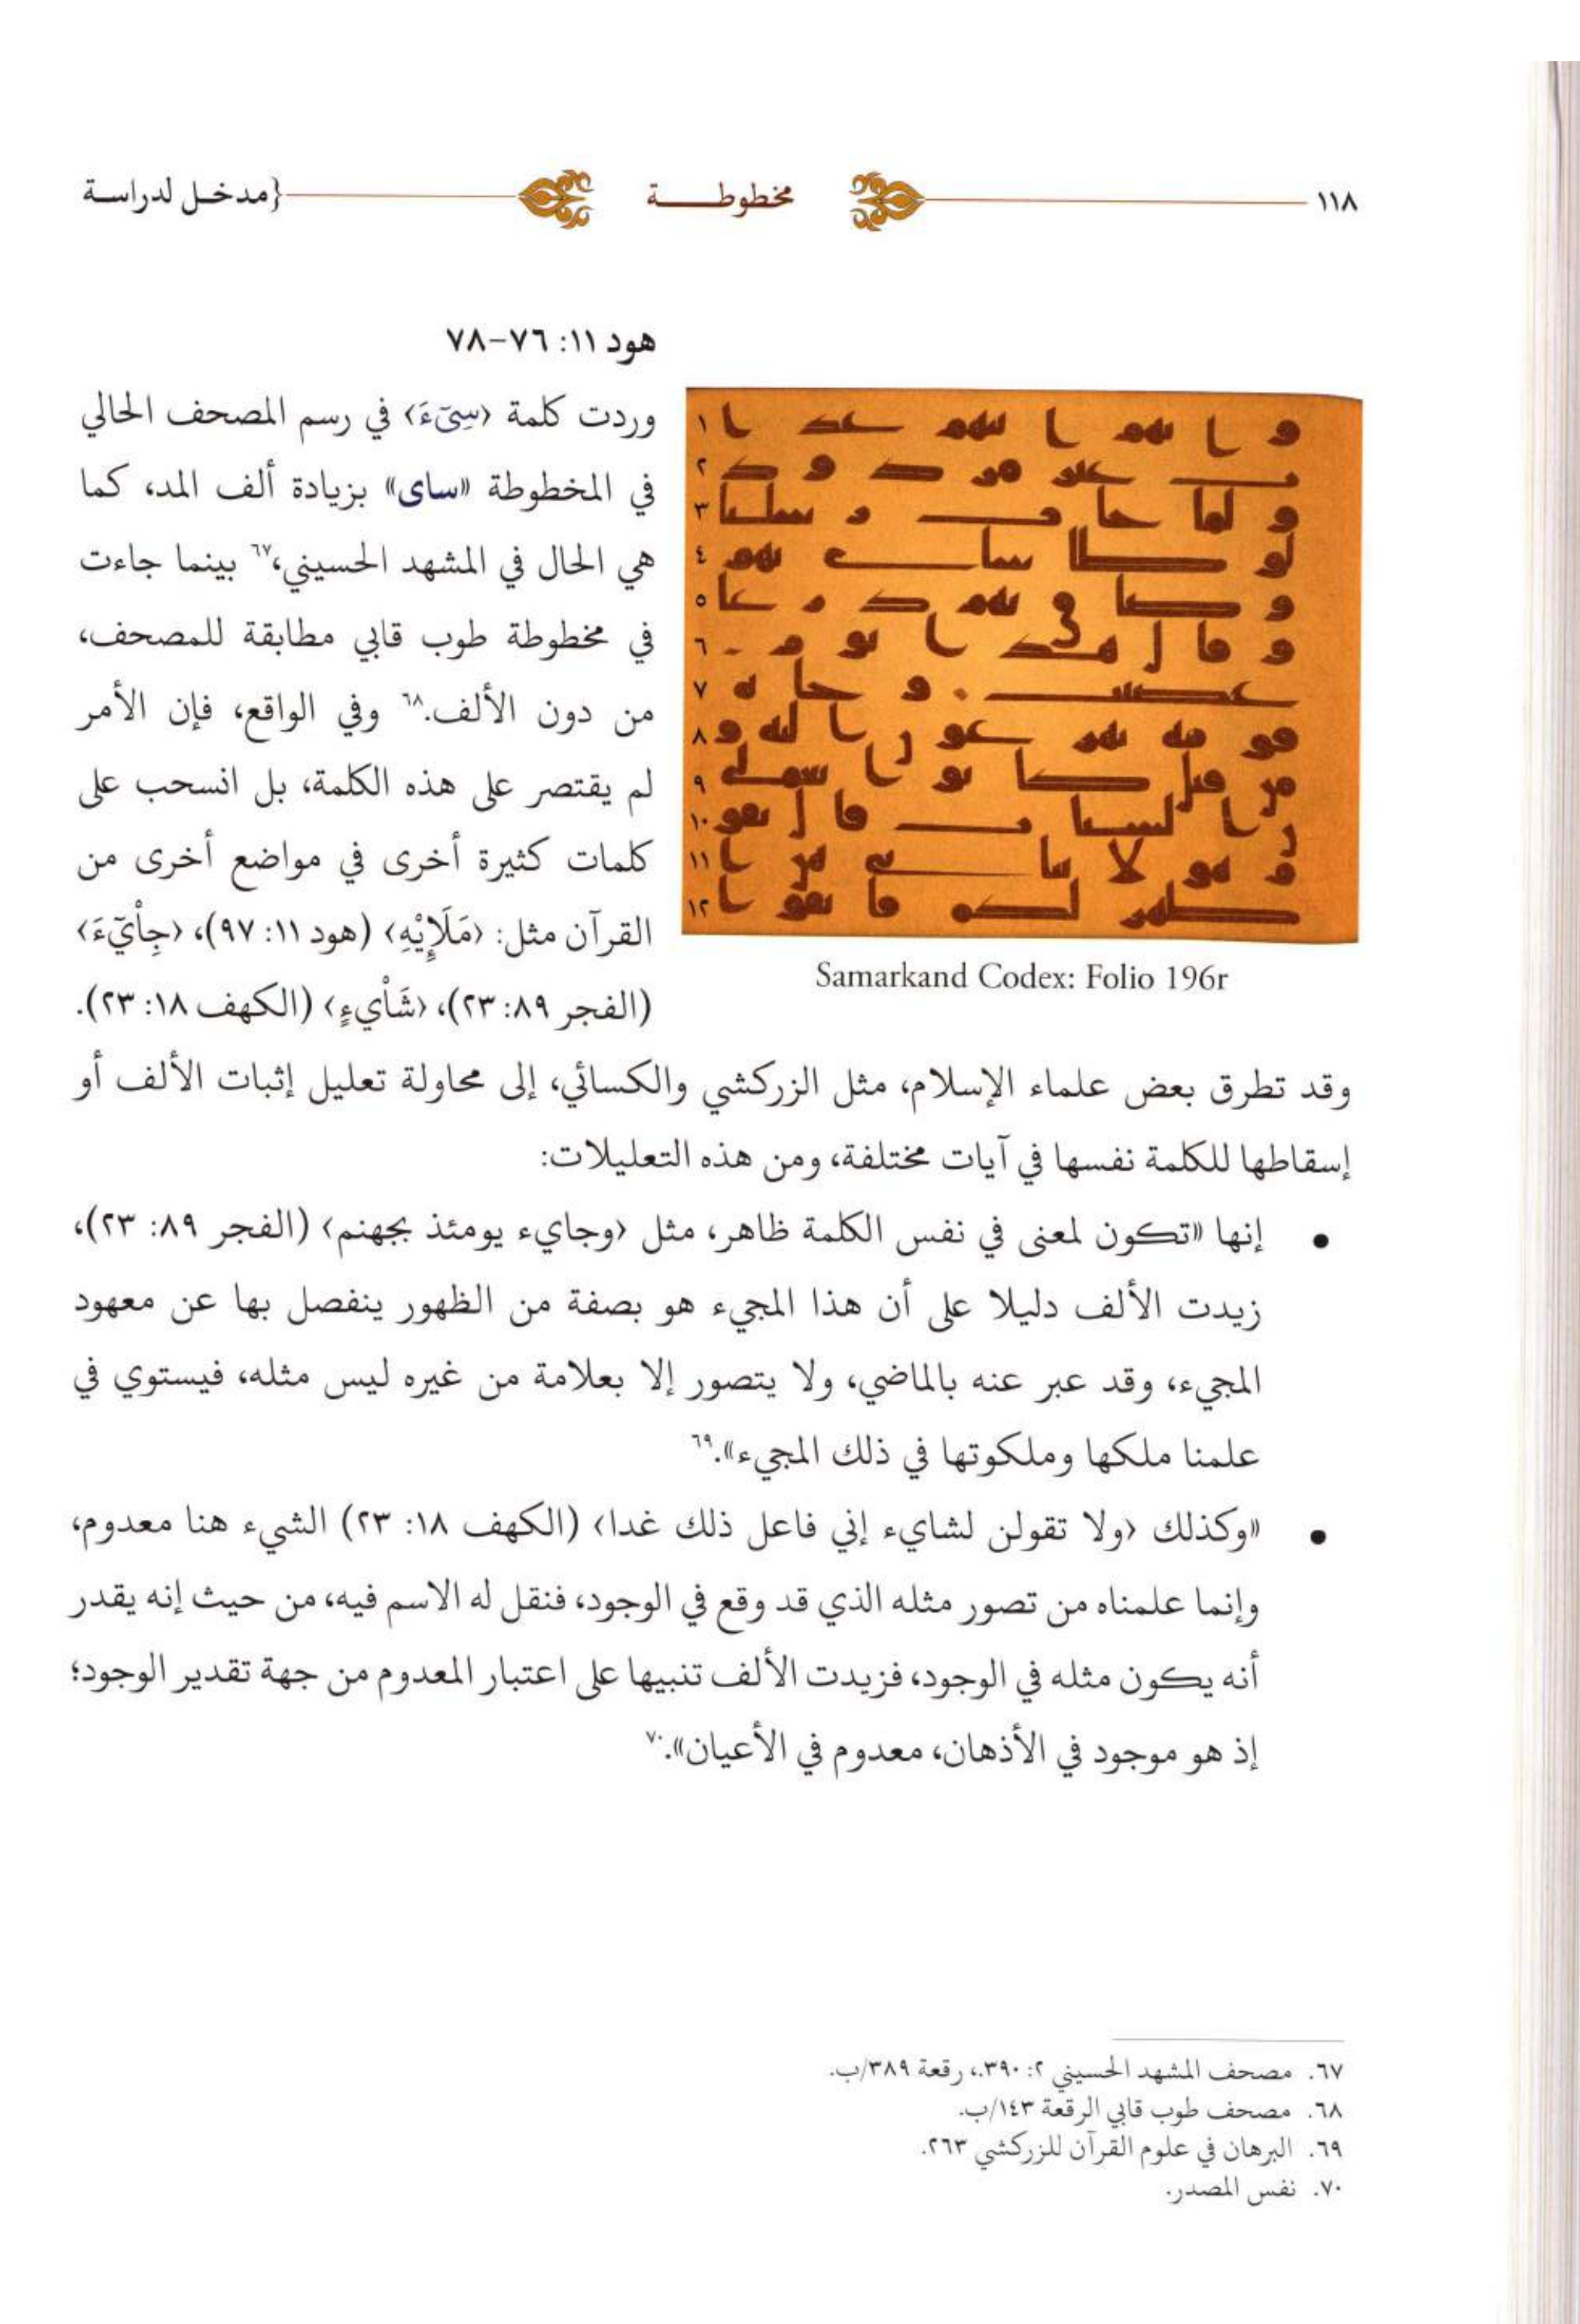 ١١٨ مخطوطـــــة {مدخـل لدراسـة
هود ١١: ٧٦-٧٨
وردت كلمة ‹سِىٓءَ› في رسم المصحف الحالي
في المخطوطة «ساى» بزيادة ألف المد، كما
هي الحال في المشهد الحسيني،٦٧ بينما جاءت
في مخطوطة طوب قابي مطابقة للمصحف،
من دون الألف.٦٨ وفي الواقع، فإن الأمر
لم يقتصر على هذه الكلمة، بل انسحب على
كلمات كثيرة أخرى في مواضع أخرى من
القرآن مثل: ‹مَلَإِيْهِ› (هود ١١: ٩٧)، ‹جِاْيٓءَ›
(الفجر ٨٩: ٢٣)، ‹شَاْيءٍ› (الكهف ١٨: ٢٣).
١
٢
٣
٤
٥
٦
٧
٨
٩
١٠
١١
١٢
Samarkand Codex: Folio 196r
وقد تطرق بعض علماء الإسلام، مثل الزركشي والكسائي، إلى محاولة تعليل إثبات الألف أو
إسقاطها للكلمة نفسها في آيات مختلفة، ومن هذه التعليلات:
• إنها «تكون لمعنى في نفس الكلمة ظاهر، مثل ‹وجايء يومئذ بجهنم› (الفجر ٨٩: ٢٣)،
زيدت الألف دليلا على أن هذا المجيء هو بصفة من الظهور ينفصل بها عن معهود
المجيء، وقد عبر عنه بالماضي، ولا يتصور إلا بعلامة من غيره ليس مثله، فيستوي في
علمنا ملكها وملكوتها في ذلك المجيء».٦٩
• «وكذلك ‹ولا تقولن لشايء إني فاعل ذلك غدا› (الكهف ١٨: ٢٣) الشيء هنا معدوم،
وإنما علمناه من تصور مثله الذي قد وقع في الوجود، فنقل له الاسم فيه، من حيث إنه يقدر
أنه يكون مثله في الوجود، فزيدت الألف تنبيها على اعتبار المعدوم من جهة تقدير الوجود؛
إذ هو موجود في الأذهان، معدوم في الأعيان».٧٠
٦٧. مصحف المشهد الحسيني ٢: ٣٩٠.، رقعة ٣٨٩/ب.
٦٨. مصحف طوب قابي الرقعة ١٤٣/ب.
٦٩. البرهان في علوم القرآن للزركشي ٢٦٣.
٧٠. نفس المصدر.